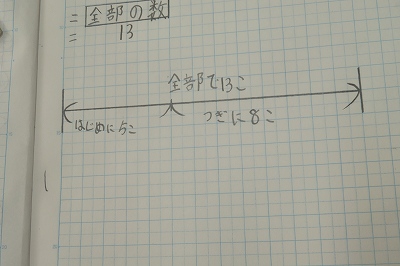 = 全部の数
= 13
全部で13こ
はじめに5こ
つぎに8こ